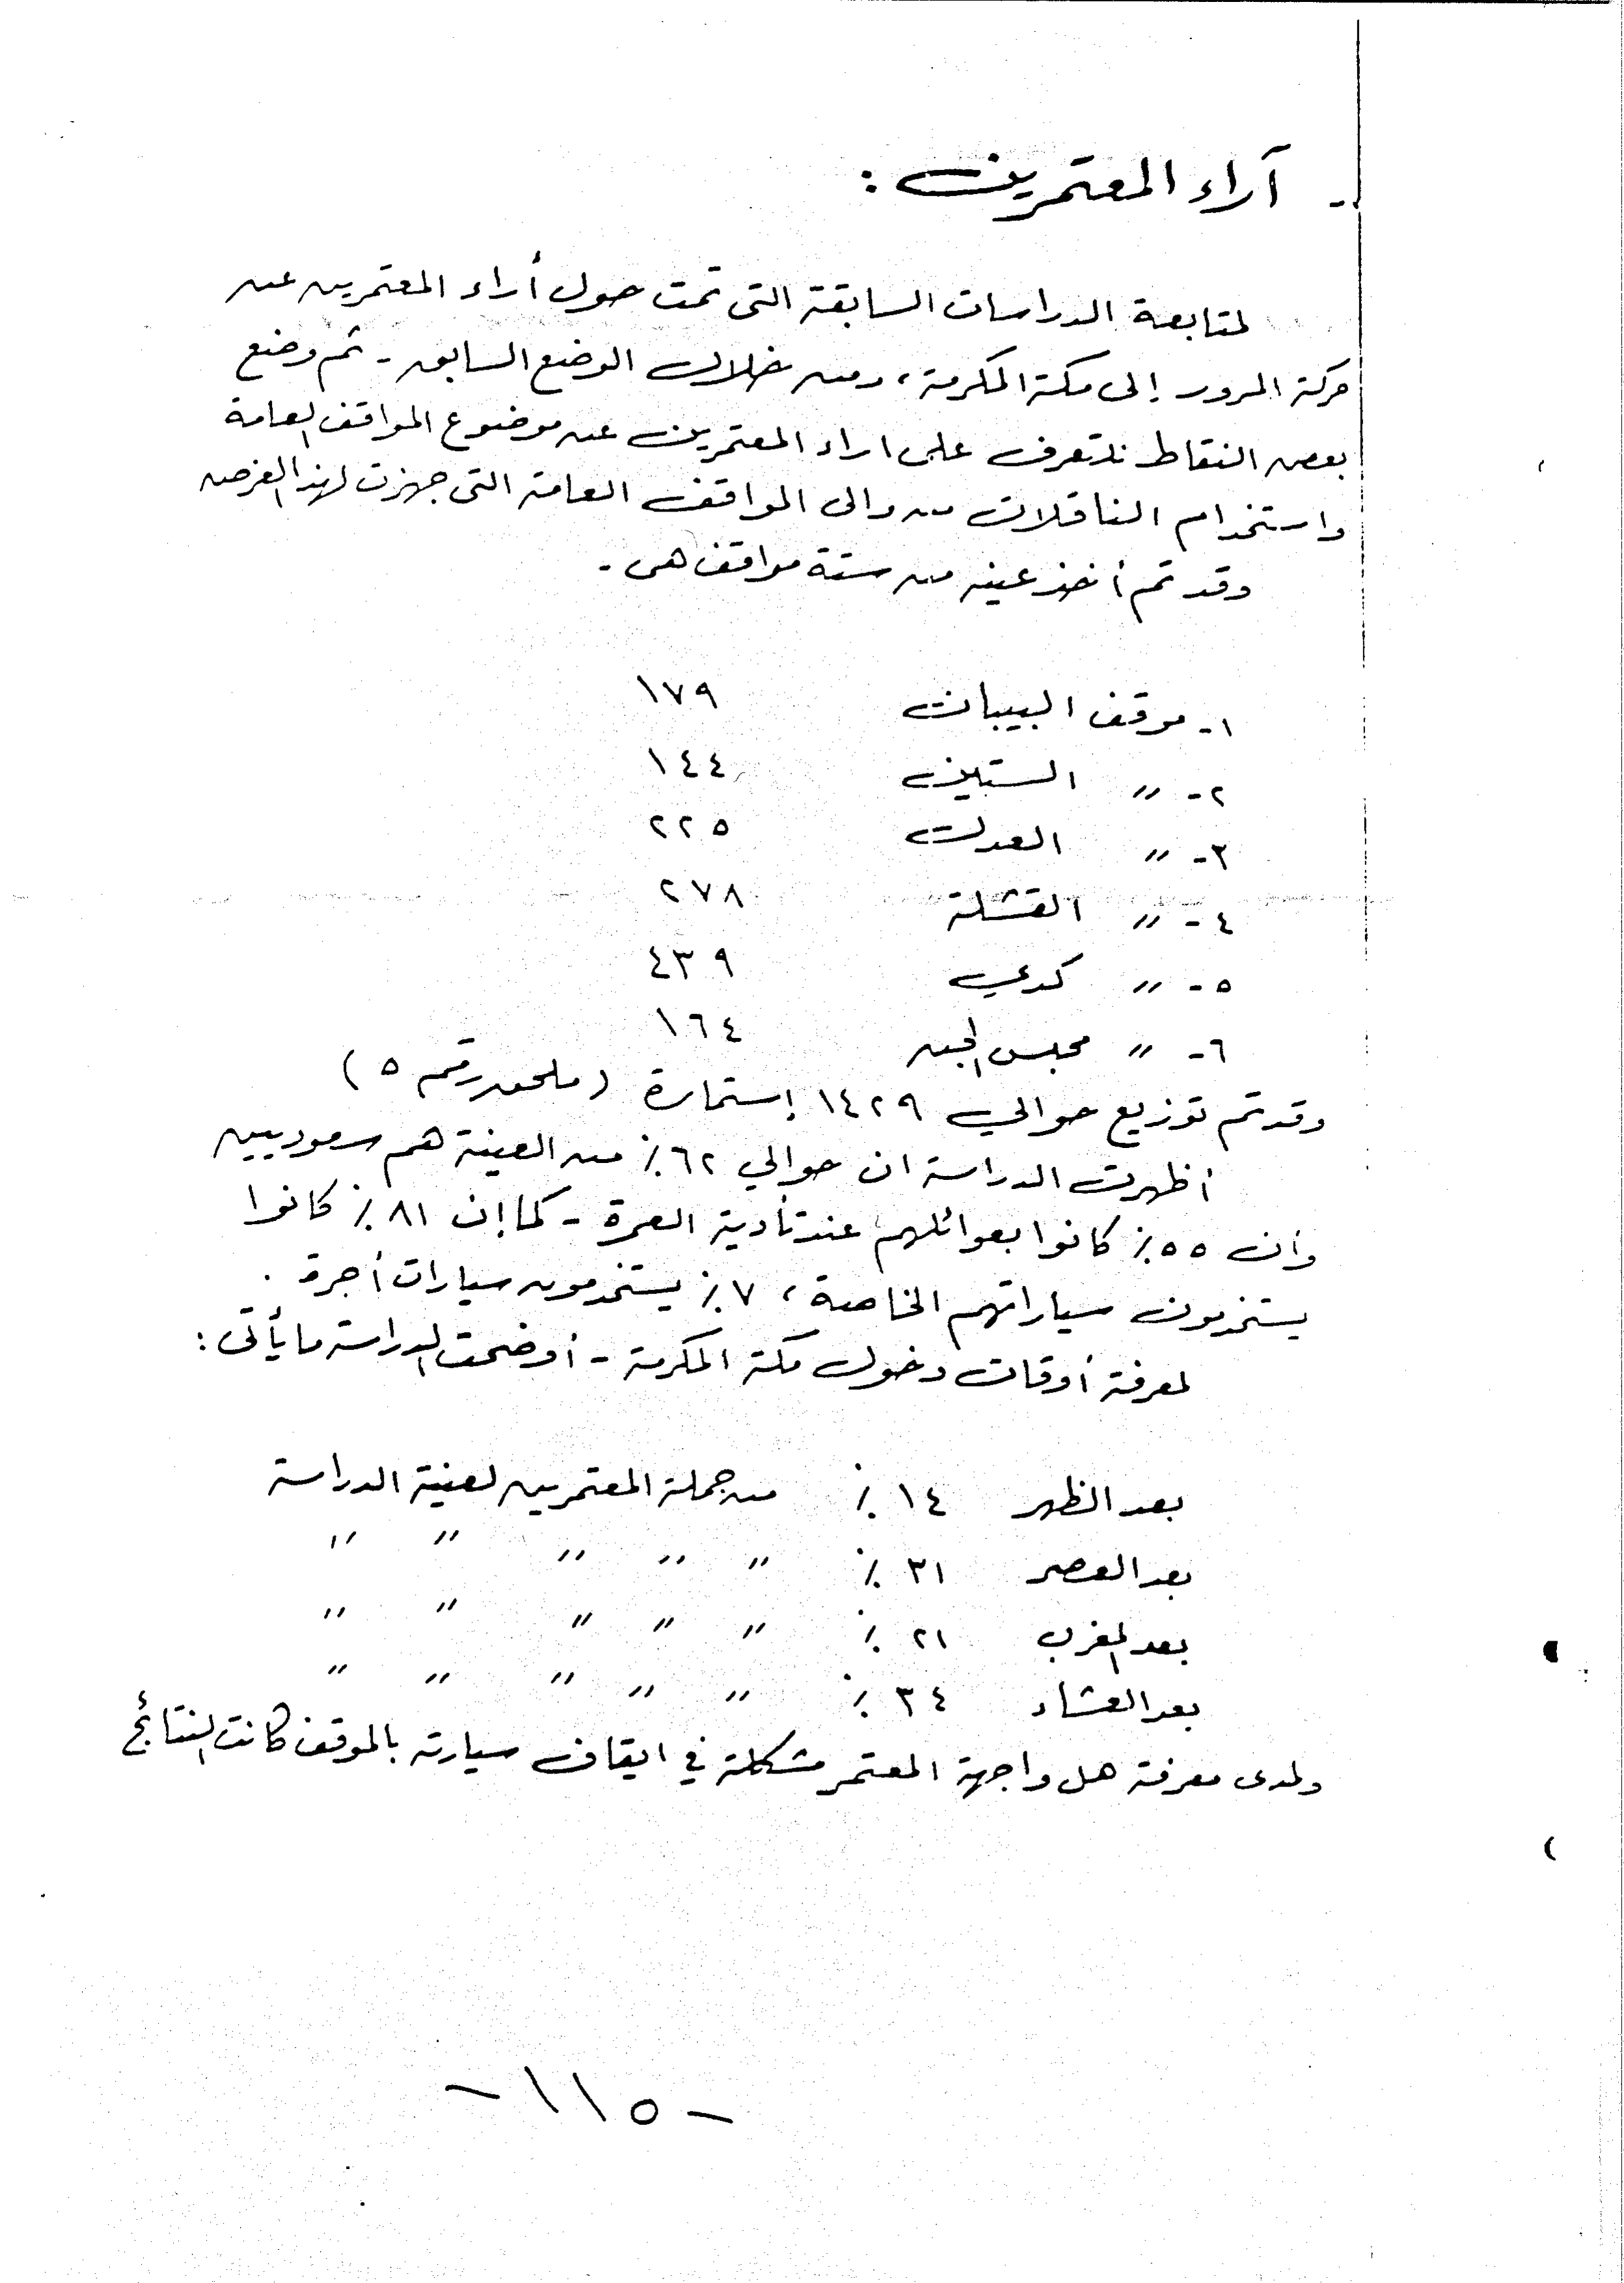 - آراء المعتمرين :
لمتابعة الدراسات السابقة التى تمت حول أراء المعتمرين عن
حركة المرور إلى مكة المكرمة ، ومن خلال الوضع السابق - تم وضع
بعض النقاط للتعرف على اراء المعتمرين عن موضوع المواقف العامة
واستخدام الناقلات من والى المواقف العامة التى جهزت لهذا الغرض
وقد تم أخذ عينه من ستة مواقف هى -
١- موقف البيبان ١٧٩
٢- " الستين ١٤٤
٣- " العدل ٢٢٥
٤- " القشلة ٢٧٨
٥- " كدي ٤٣٩
٦- " مجلس الجن ١٦٤
وقد تم توزيع حوالي ١٤٢٩ إستمارة (ملحق رقم ٥)
أظهرت الدراسة ان حوالي ٦٢٪ من العينة هم سعوديين
وأن ٥٥٪ كانوا بعوائلهم عند تأدية العمرة - كما إن ٨١٪ كانوا
يستخدمون سياراتهم الخاصة ، ٧٪ يستخدمون سيارات أجرة .
لمعرفة أوقات دخول مكة المكرمة - أوضحت الدراسة ما يأتى :
بعد الظهر ١٤٪ من جملة المعتمرين لعينة الدراسة
بعد العصر ٣١٪ " " " " "
بعد المغرب ٢١٪ " " " " "
بعد العشاء ٣٤٪ " " " " "
ولمدى معرفة هل واجهة المعتمر مشكلة في ايقاف سيارته بالموقف كانت النتائج
- ١١٥ -